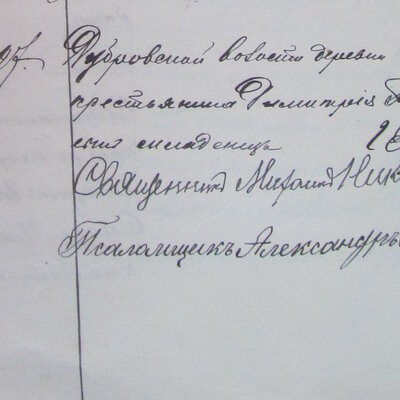 Дубровской волости деревни
крестьянина Димитрія
младенецъ
Священникъ Михаилъ Ник
Псаломщикъ Александръ